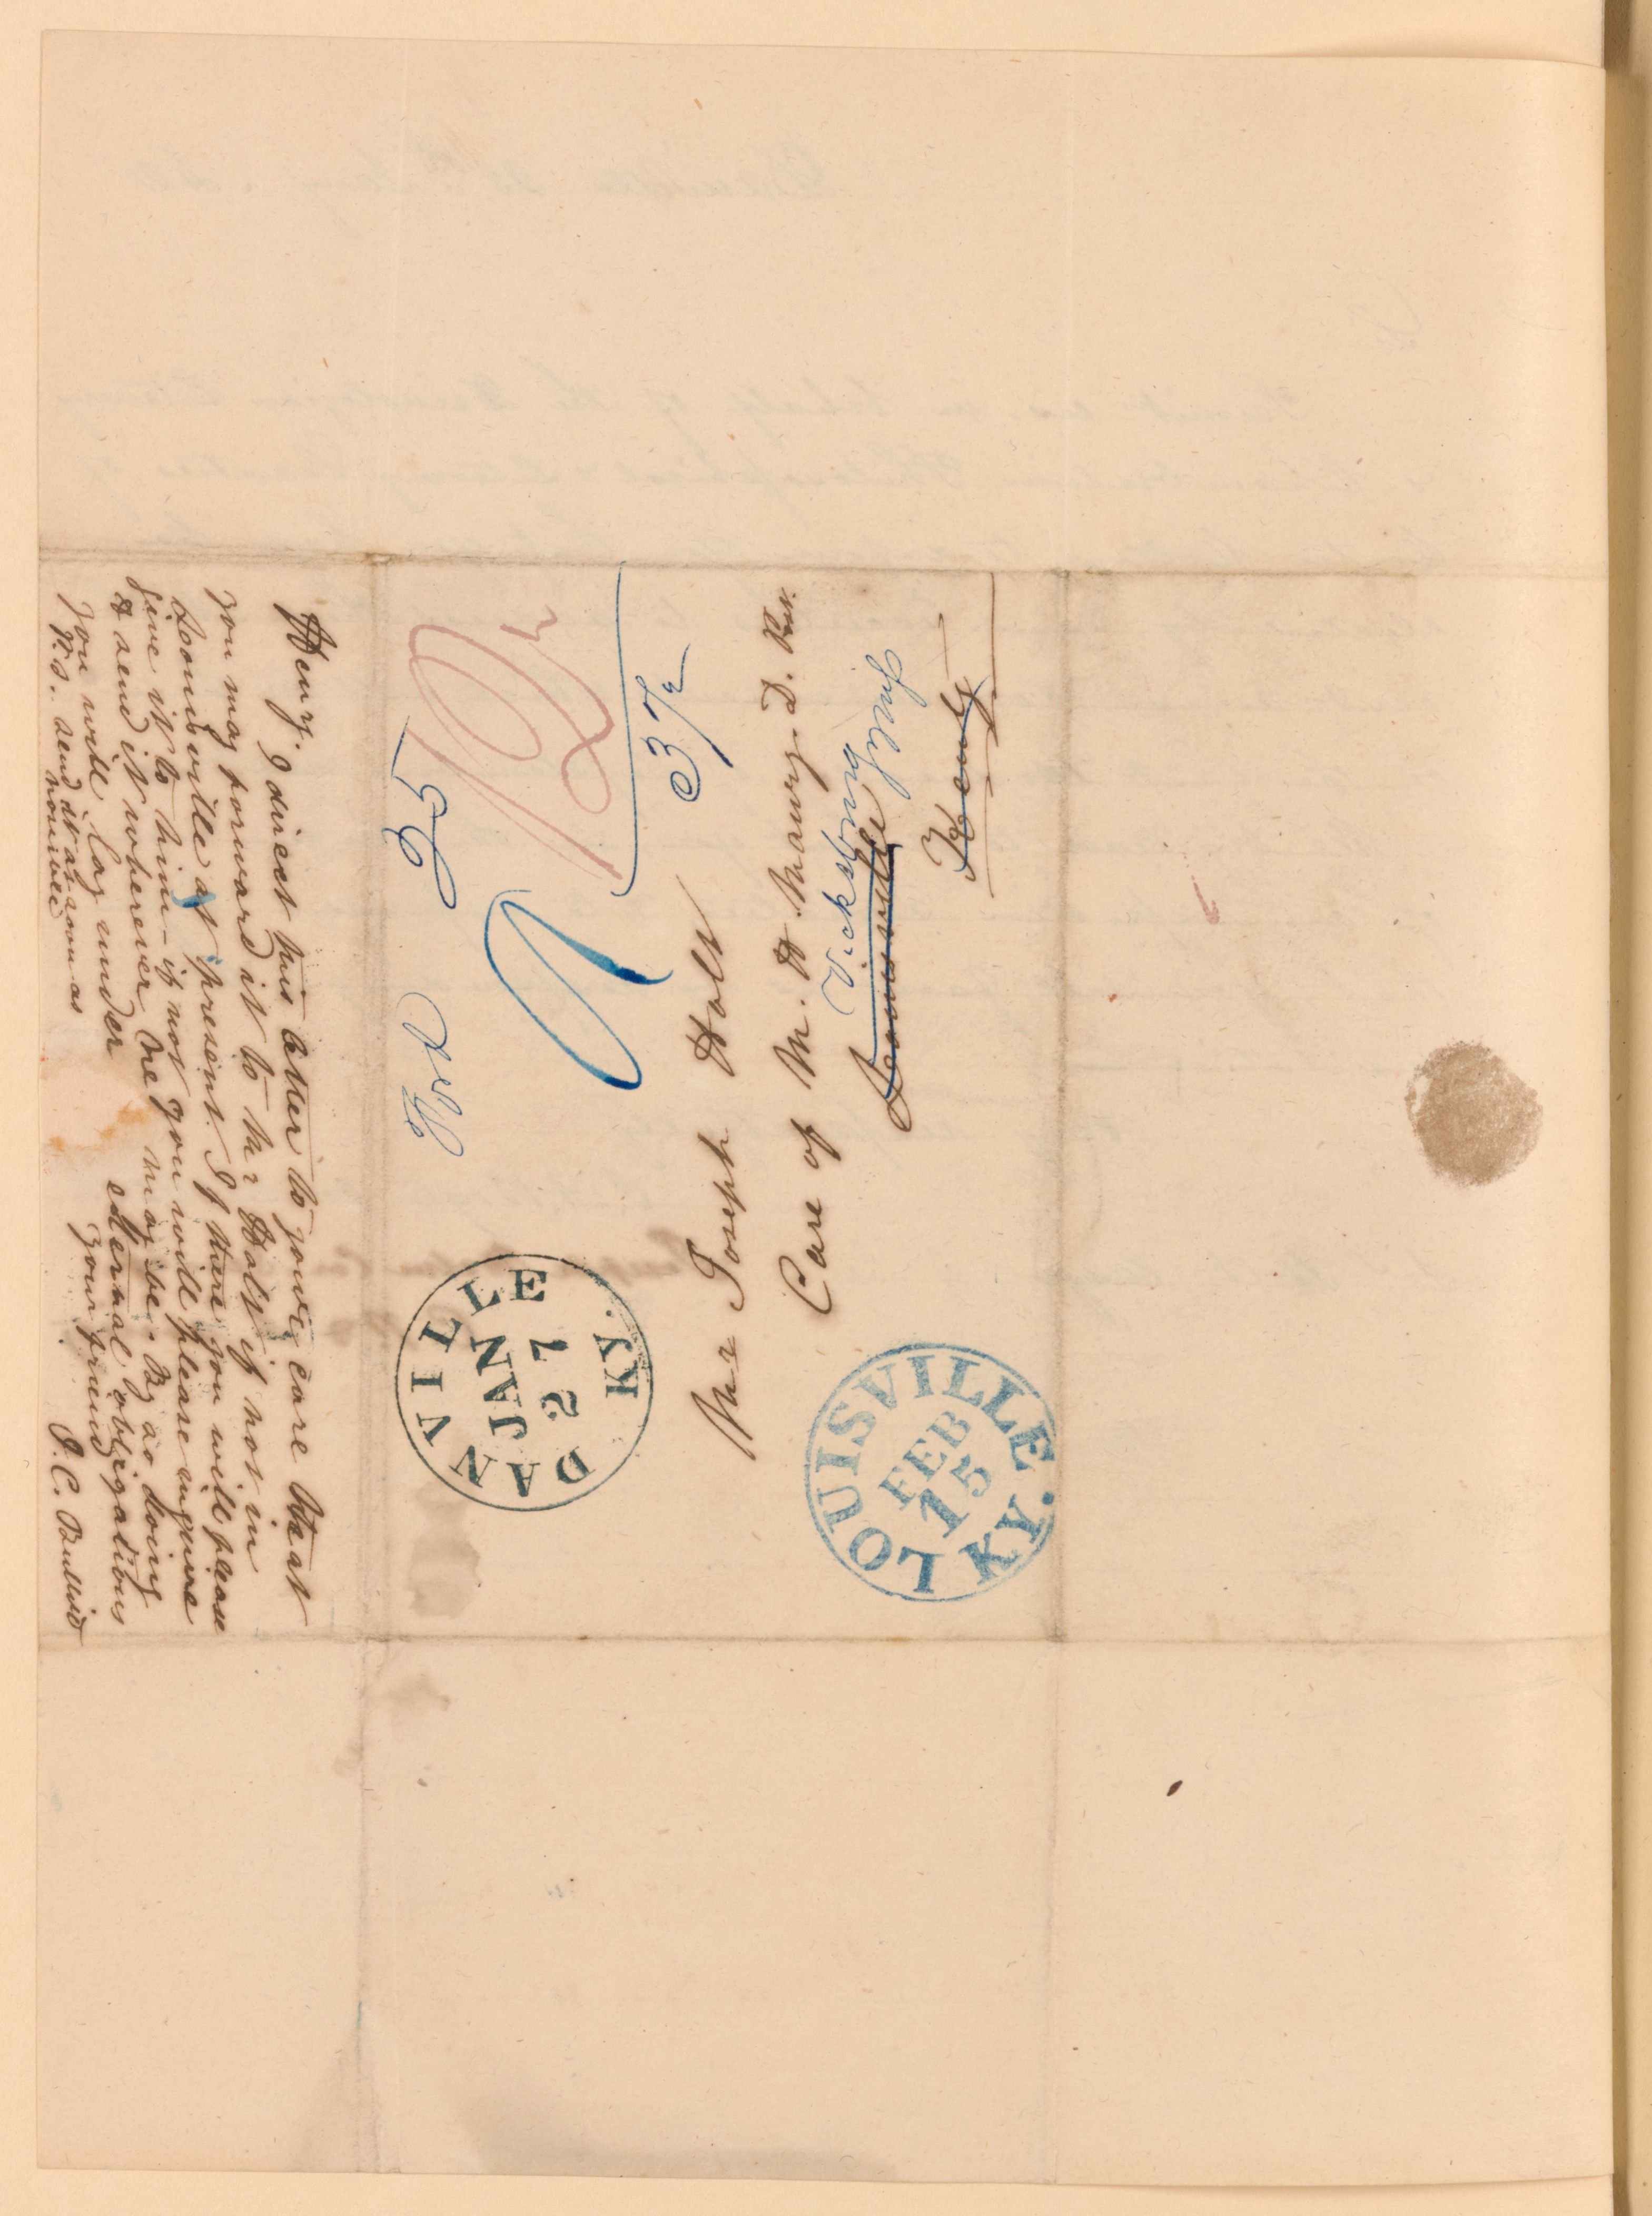 Henry. I direct this letter to your care that
you may forward it to Mr Holt if not in
Louisville at present. If there you will please
give it to him – if not you will please inquire
& send it wherever he may be. By so doing
you will lay under eternal obligations
your friend
J. C.
P.S. send it as soon as
received
Fwd 25
12½
37½
DANVILLE KY.
JAN
27
Mr Joseph Holt
Care of M. H. Maury. D.
Vicksburg
Louisville
Miss
Kenty
LOUISVILLE KY.
FEB
15